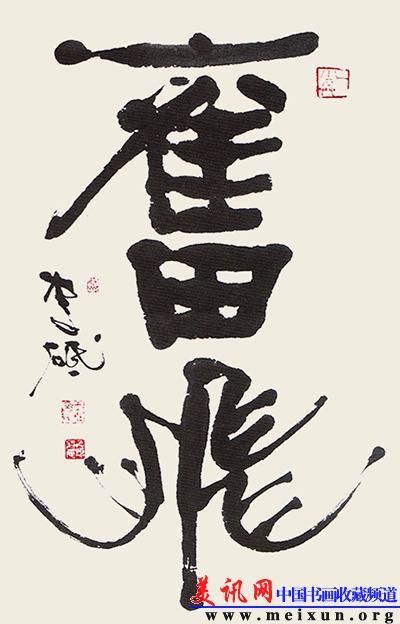 奮飛
美讯网 中国书画收藏频道
www.meixun.org